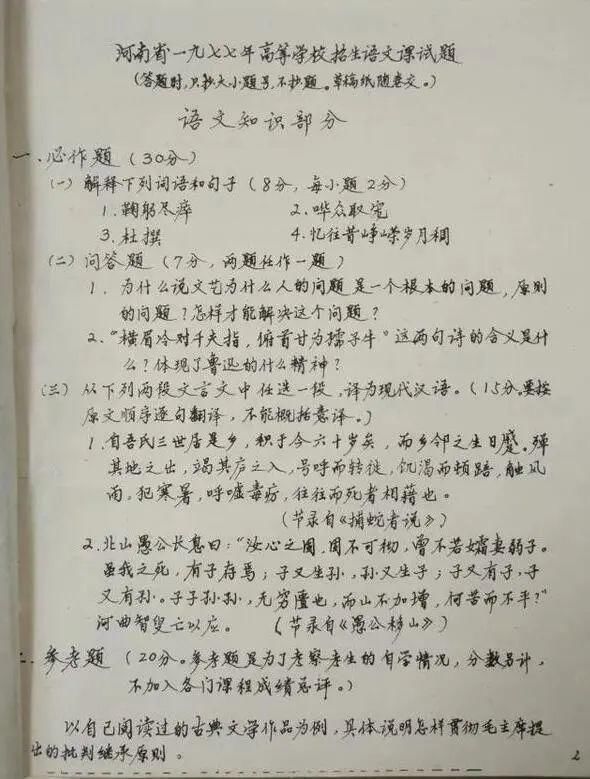 河南省一九七七年高等学校招生语文课试题
(答题时,只抄大小题号,不抄题。草稿纸随卷交。)
语文知识部分
一.必作题(30分)
(一)解释下列词语和句子(8分,每小题2分)
1.鞠躬尽瘁 2.哗众取宠
3.杜撰 4.忆往昔峥嵘岁月稠
(二)问答题(7分,两题任作一题)
1.为什么说文艺为什么人的问题是一个根本的问题,原则
的问题?怎样才能解决这个问题?
2."横眉冷对千夫指,俯首甘为孺子牛"这两句诗的含义是什
么?体现了鲁迅的什么精神?
(三)从下列两段文言文中任选一段,译为现代汉语。(15分。要按
原文顺序逐句翻译,不能概括意译。)
1.自吾氏三世居是乡,积于今六十岁矣,而乡邻之生日蹙。殚
其地之出,竭其庐之入,号呼而转徙,饥渴而顿踣,触风
雨,犯寒暑,呼嘘毒疠,往往而死者相藉也。
(节录自《捕蛇者说》)
2.北山愚公长息曰:"汝心之固,固不可彻,曾不若孀妻弱子。
虽我之死,有子存焉;子又生孙,孙又生子;子又有子,子
又有孙。子子孙孙,无穷匮也,而山不加增,何苦而不平?"
河曲智叟亡以应。 (节录自《愚公移山》)
二.参考题(20分。参考题是为了考察考生的自学情况,分数另计,
不加入各门课程成绩总评。)
以自己阅读过的古典文学作品为例,具体说明怎样贯彻毛主席提
出的批判继承原则。
2